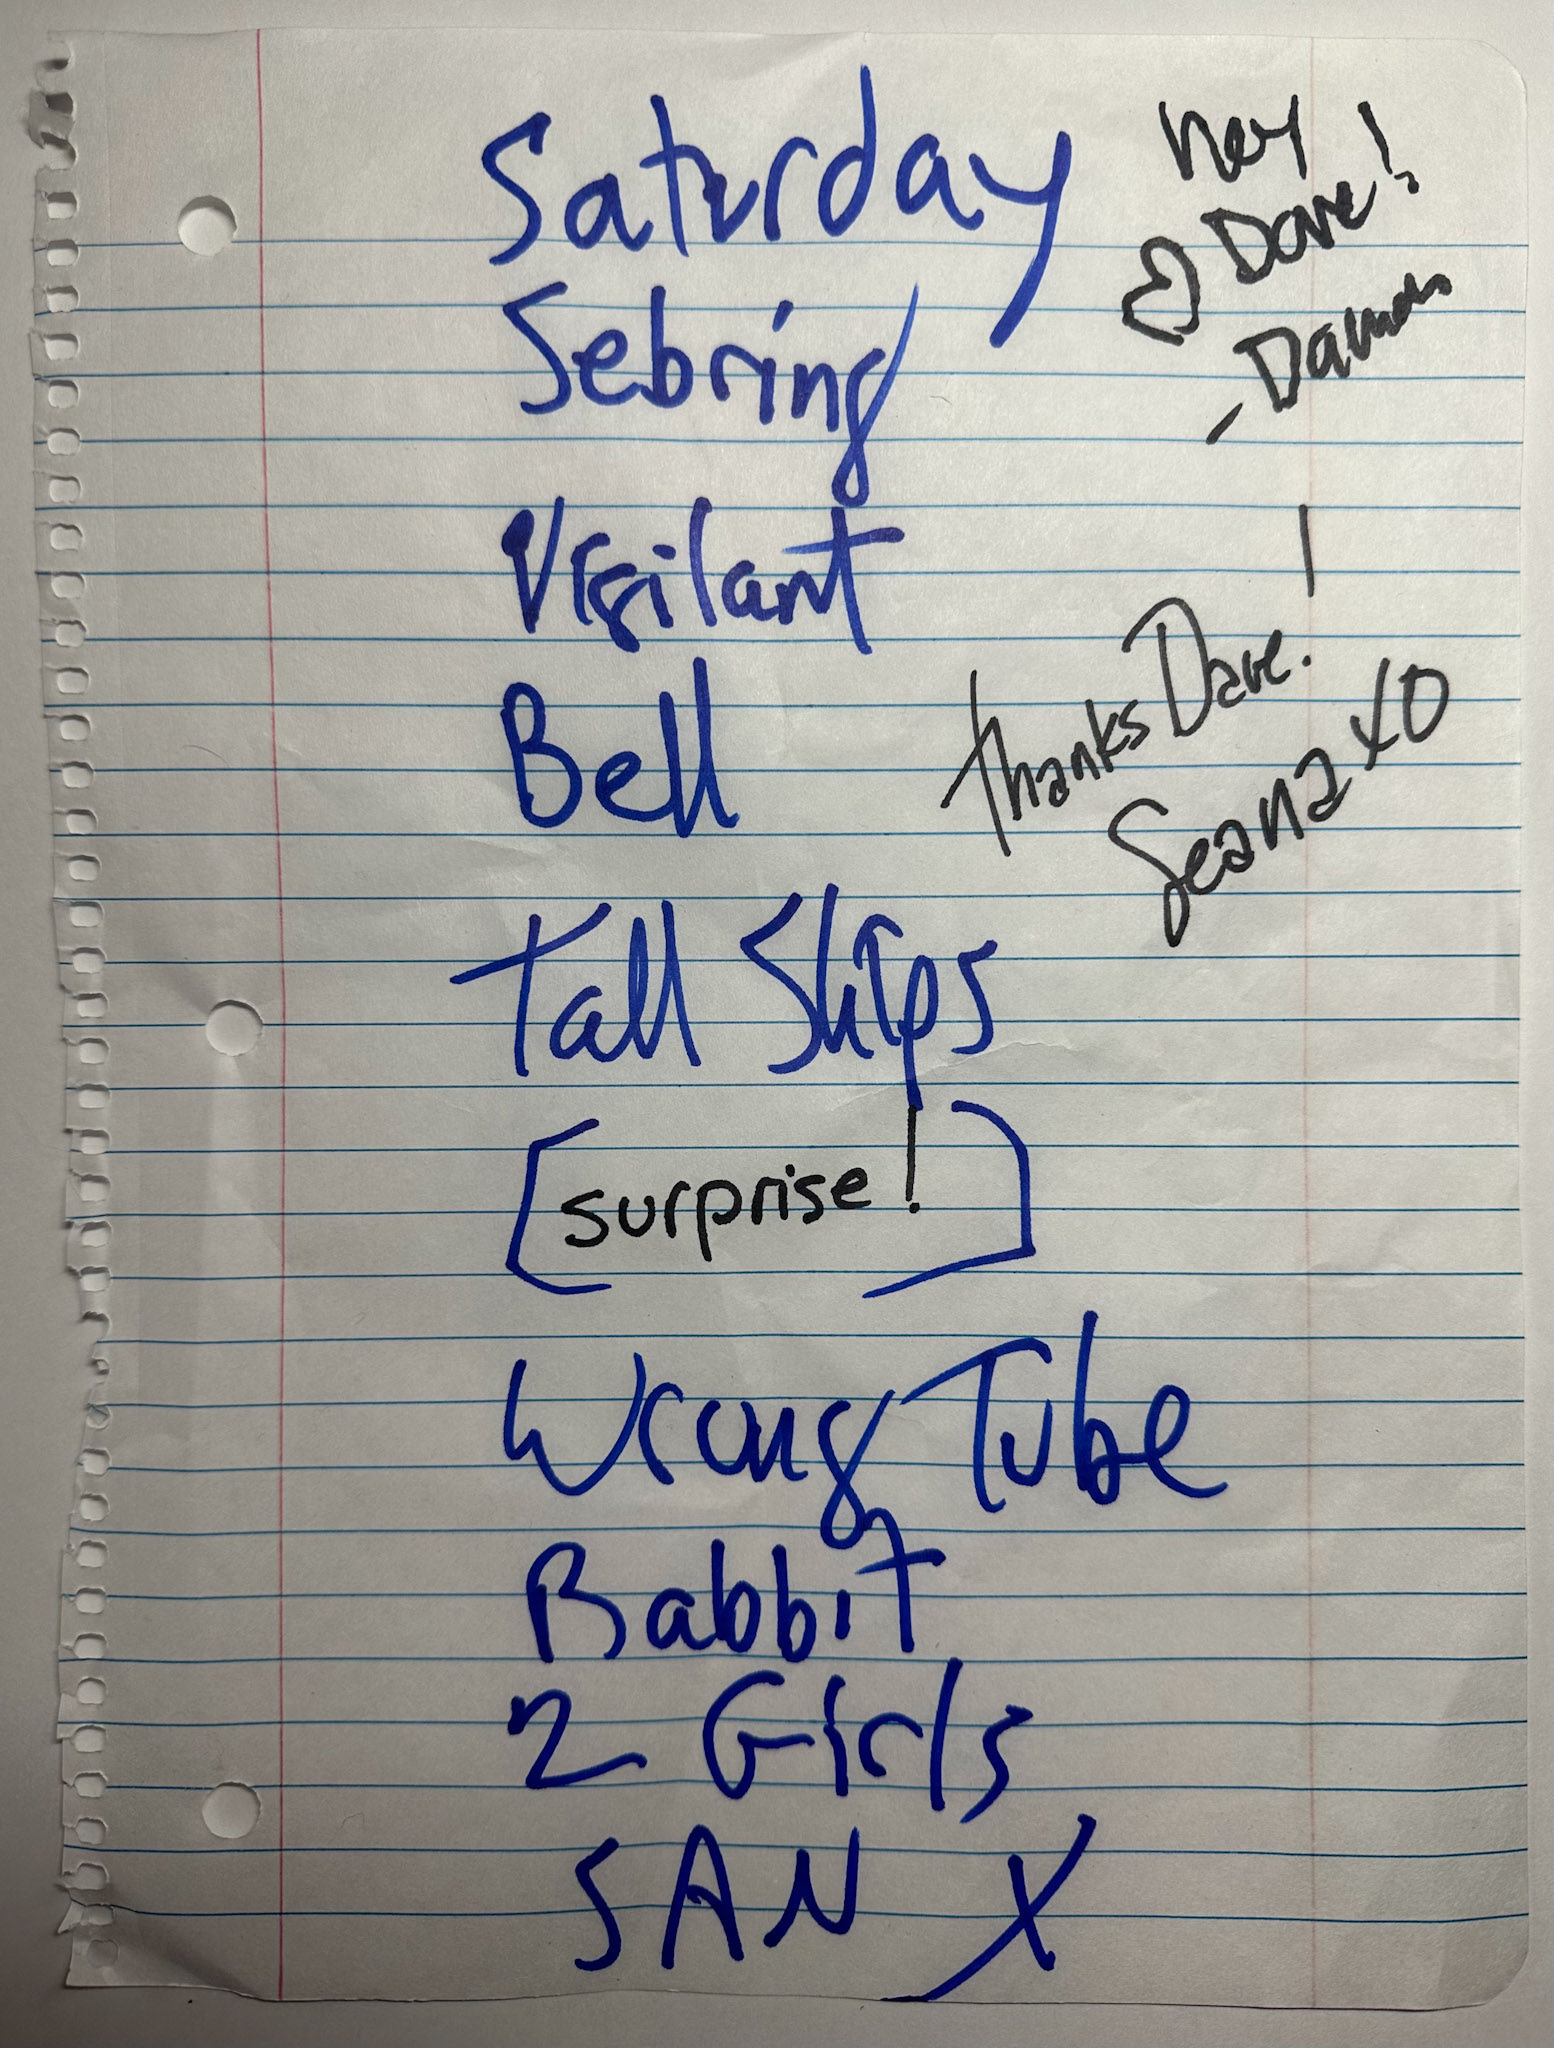 Saturday
hey
Dave!
Sebring
- Damon
Vigilant
Bell
Thanks Dave!
Seana XO
Tall Ships
[surprise!]
Wrong Tube
Rabbit
2 Girls
SAN X